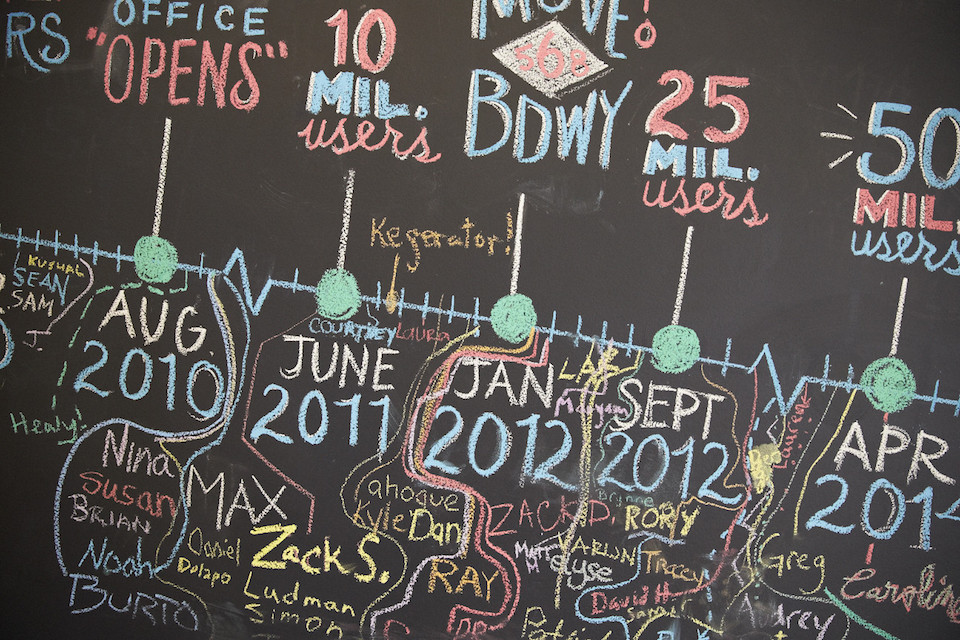 OFFICE
"OPENS"
RS
10
MIL.
users
MOVE!
568
BDWY
25
MIL.
users
50
MIL.
users
Kegerator!
Kushal
SEAN
SAM
J.
AUG.
2010
Healy!
COURTNEY
Laura
JUNE
2011
JAN
2012
LAB
Maryam
SEPT
2012
Lauren
APR
201
Nina
Susan
BRIAN
Noah
BURTO
MAX
Daniel
Dolapo
Zack S.
Ludman
Simon
ahogue
Kyle
Dan
RAY
ZACK D.
Matt
Elyse
VARUN
Brynne
RORY
Tracey
David H
Greg
Caroline